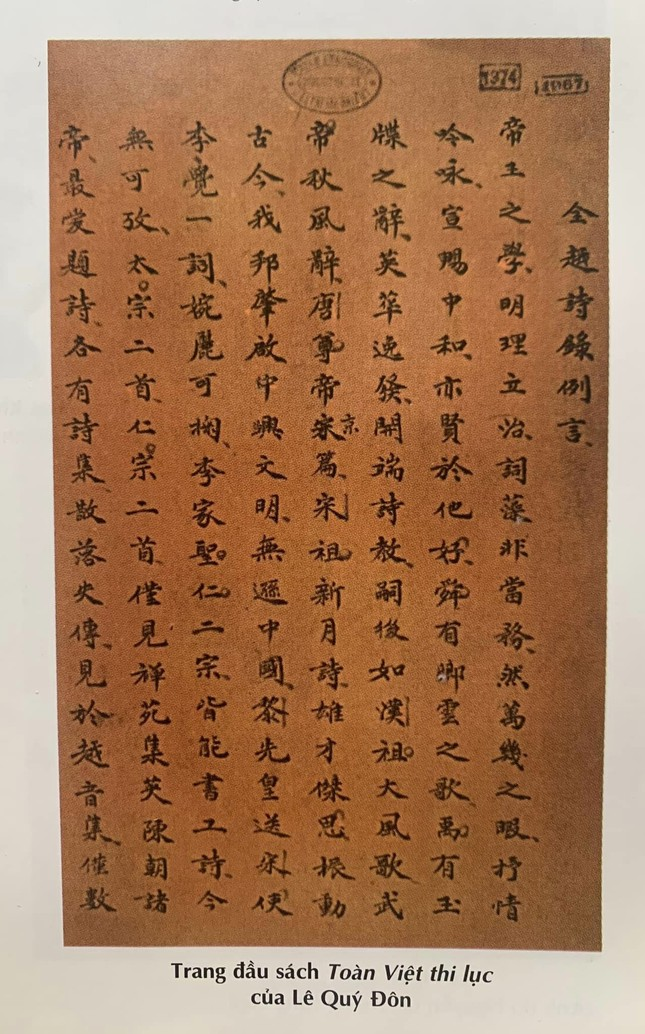 1374
全越詩錄例言
帝王之學明理立治詞藻非當務然萬幾之暇抒情
吟咏宣暢中和亦賢於他好舜有卿雲之歌禹有玉
牒之辭英華逸發開端詩教嗣後如漢祖大風歌武
帝秋風辭唐尊帝宋京篇宋祖新月詩雄才傑思振動
古今我邦肇啟中興文明無遜中國黎先皇送宋使
李覺一詞婉麗可掬李家聖仁二宗皆能書工詩今
無可攷太宗二首仁宗二首僅見禪苑集英陳朝諸
帝最爱題詩各有詩集散落失傳見於越音集僅數
Trang đầu sách Toàn Việt thi lục
của Lê Quý Đôn